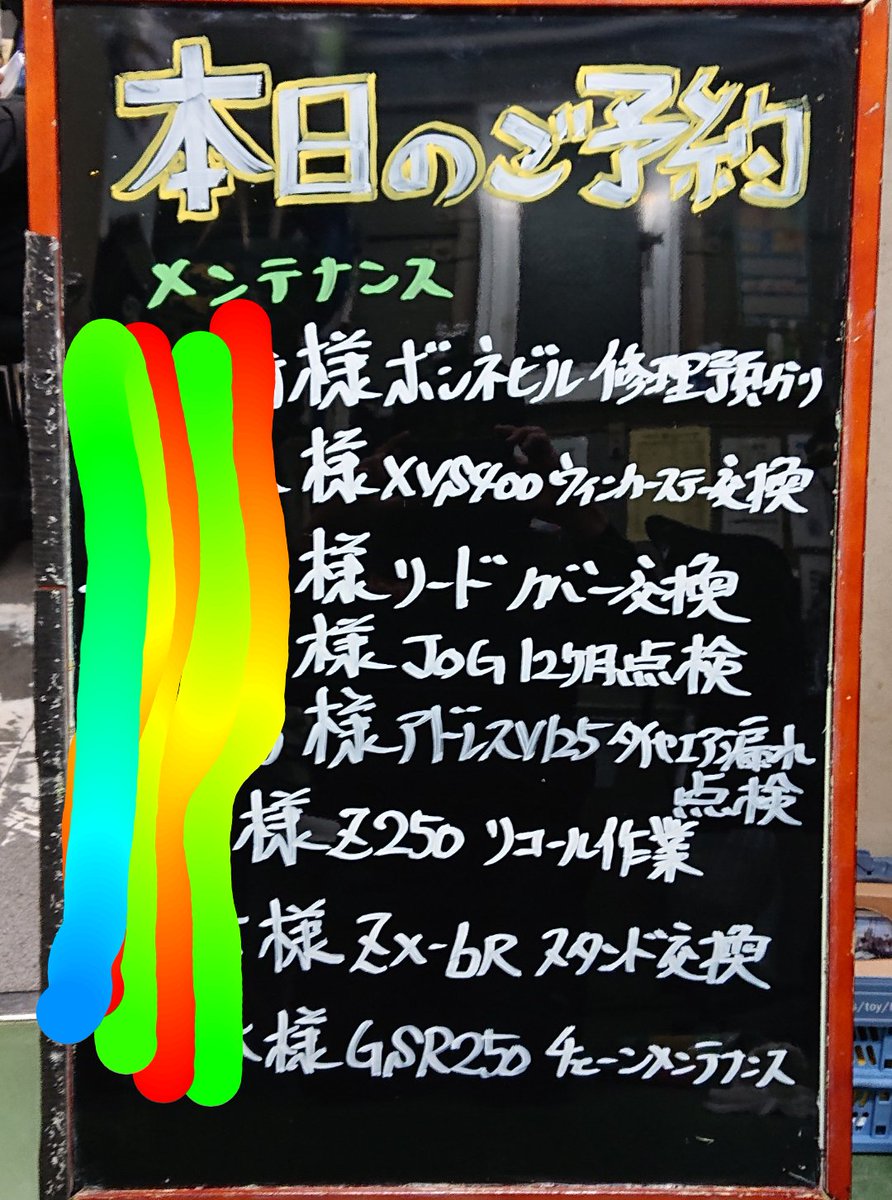 本日のご予約
メンテナンス
様 ボンネビル 修理預かり
様 XVS400 ウィンカーステー交換
様 リード カバー交換
様 JOG 12ヶ月点検
様 アドレスV125 タイヤエアー漏れ
点検
様 Z250 リコール作業
様 ZX-6R スタンド交換
様 GSR250 チェーンメンテナンス